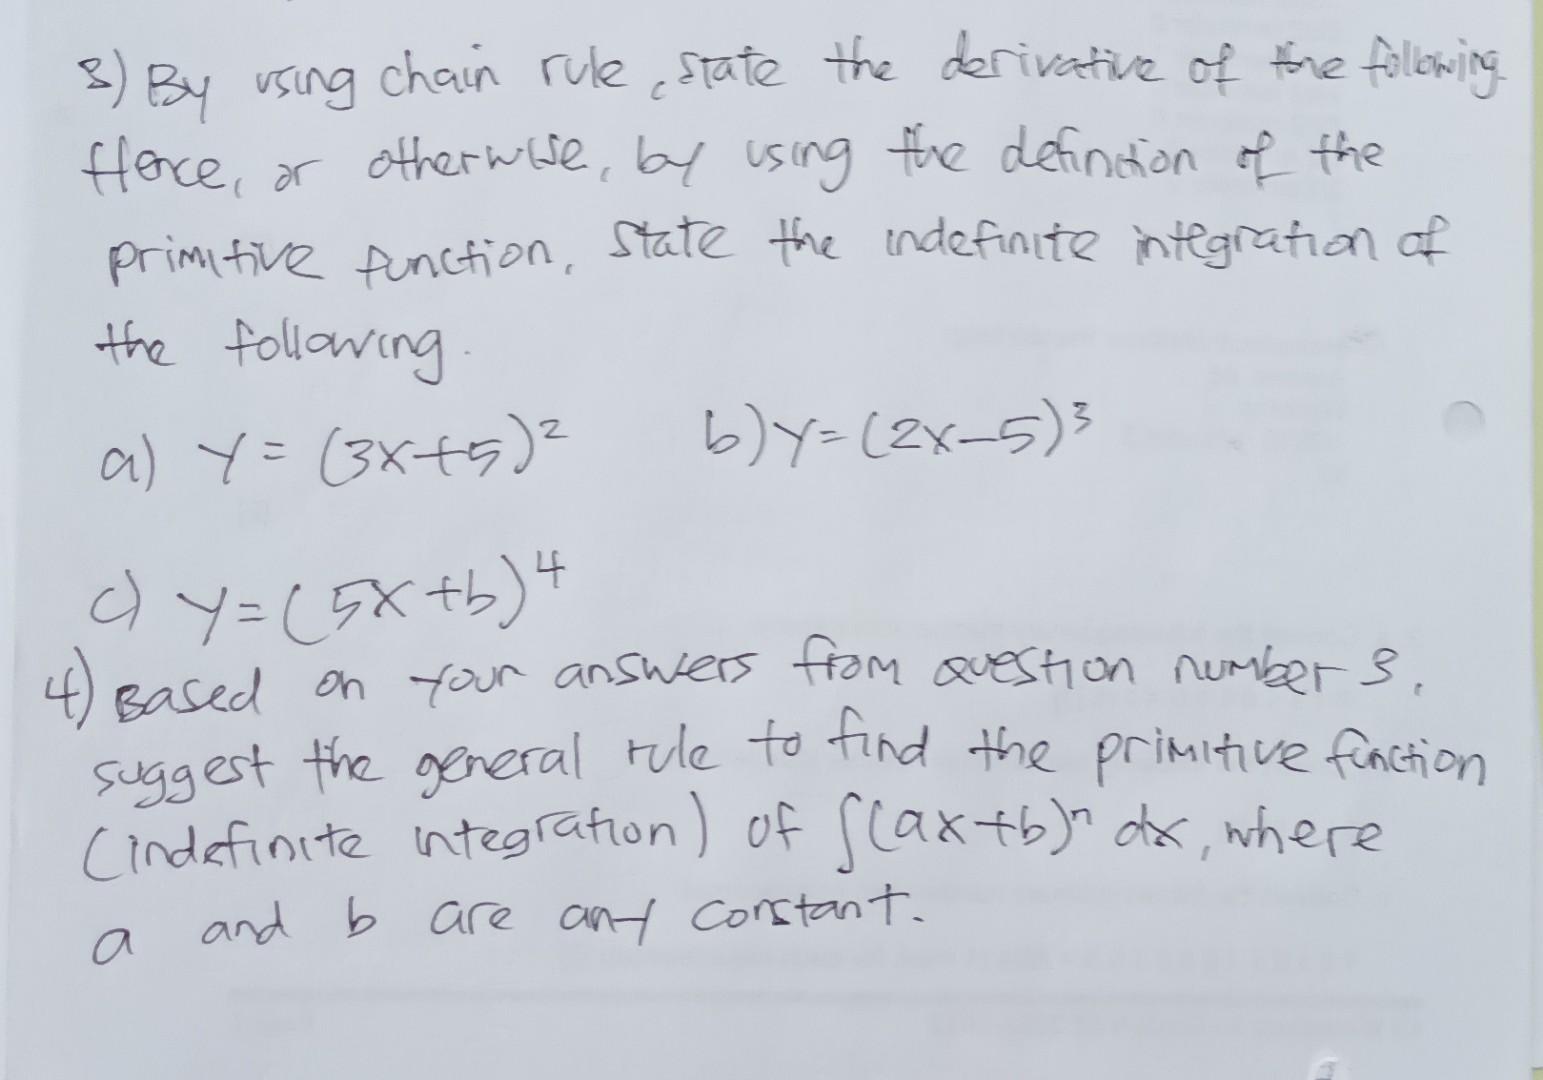 3) By using chain rule, state the derivative of the following.
Hence, or otherwise, by using the definition of the
primitive function, state the indefinite integration of
the following.
a) y = (3x+5)² b) y = (2x-5)³
c) y = (5x+b)⁴
4) Based on your answers from question number 3,
suggest the general rule to find the primitive function
(indefinite integration) of ∫(ax+b)ⁿ dx, where
a and b are any constant.